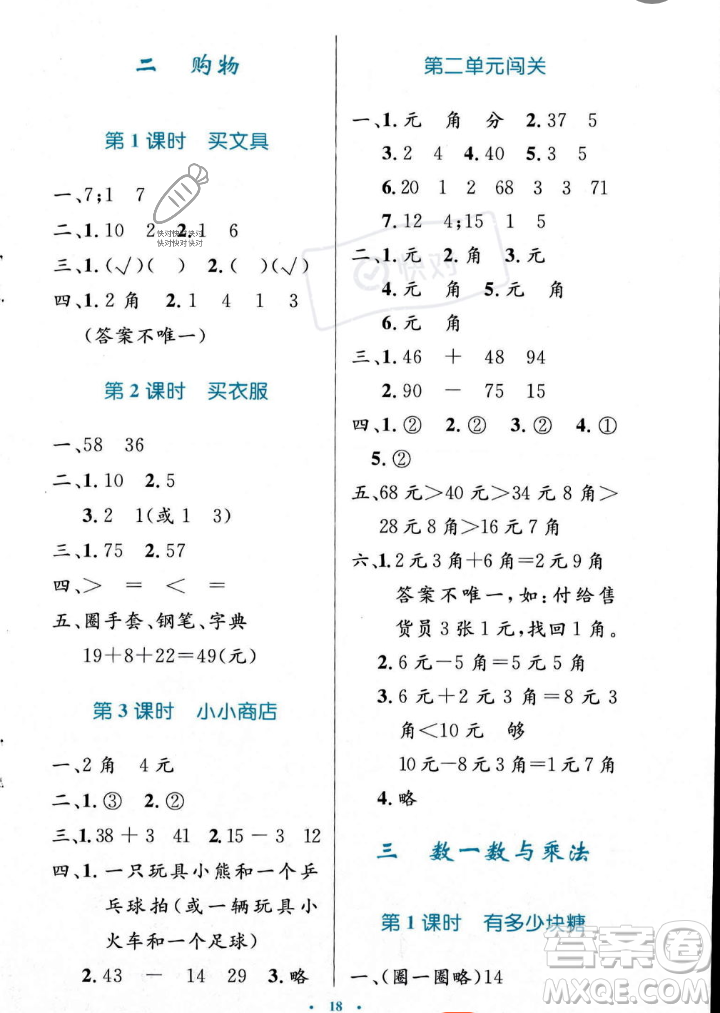 二 购物
第1课时 买文具
一、7;1 7
二、1.10 2 2.1 6
三、1.(√)( ) 2.( )(√)
四、1.2角 2.1 4 1 3
(答案不唯一)
第2课时 买衣服
一、58 36
二、1.10 2.5
3.2 1(或1 3)
三、1.75 2.57
四、> = < =
五、圈手套、钢笔、字典
19+8+22=49(元)
第3课时 小小商店
一、2角 4元
二、1.③ 2.②
三、1.38+3 41 2.15-3 12
四、1.一只玩具小熊和一个乒
乓球拍(或一辆玩具小
火车和一个足球)
2.43 - 14 29 3.略
第二单元闯关
一、1.元 角 分 2.37 5
3.2 4 4.40 5.3 2
6.20 1 2 68 3 3 71
7.12 4;15 1 5
二、1.元 2.角 3.元
4.元 角 5.元 角
6.元 角
三、1.46 + 48 94
2.90 - 75 15
四、1.② 2.② 3.② 4.①
5.②
五、68元>40元>34元8角>
28元8角>16元7角
六、1.2元3角+6角=2元9角
答案不唯一,如:付给售
货员3张1元,找回1角。
2.6元-5角=5元5角
3.6元+2元3角=8元3
角<10元 够
10元-8元3角=1元7角
4.略
三 数一数与乘法
第1课时 有多少块糖
一、(圈一圈略)14
· 18 ·
快对快对快对
快对快对
快对
答案圈
MXQE.COM